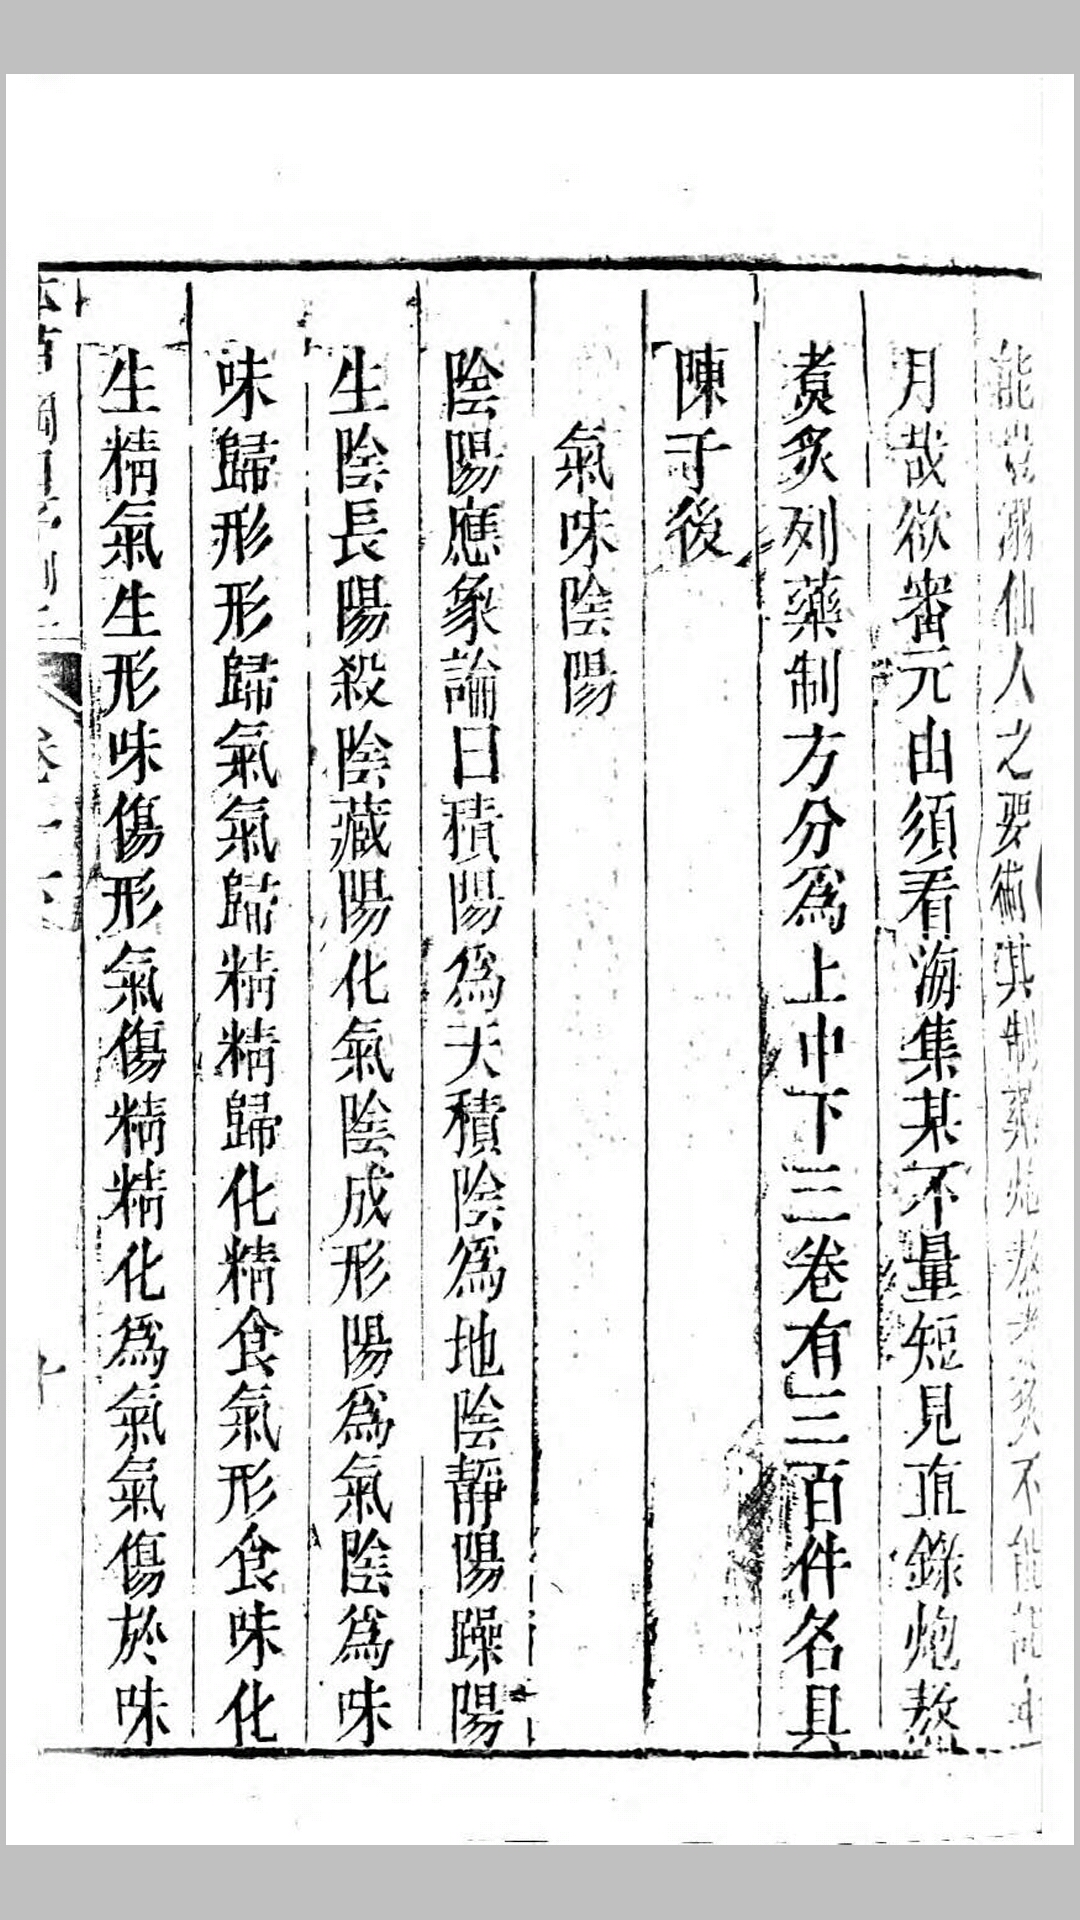 能忘溺仙人之要術其制藥炮熬煮炙不能
月哉欲審元由須看海集某不量短見直錄炮熬
煑炙列藥制方分爲上中下三卷有三百件名具
陳于後
氣味陰陽
陰陽應象論曰積陽爲天積陰爲地陰靜陽躁陽
生陰長陽殺陰藏陽化氣陰成形陽爲氣陰爲味
味歸形形歸氣氣歸精精歸化精食氣形食味化
生精氣生形味傷形氣傷精精化爲氣氣傷於味
本草綱目序例上 卷一 十